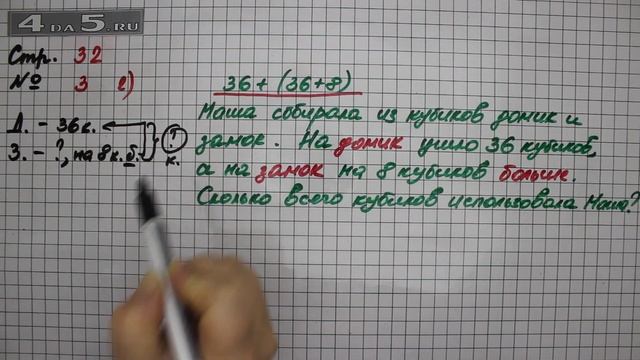 4DA5.RU
Стр. 32
№ 3 2)
Д. - 36 к.
З. - ?, на 8 к. б.
?
к.
36 + (36+8)
Маша собирала из кубиков домик и
замок. На домик ушло 36 кубиков,
а на замок на 8 кубиков больше.
Сколько всего кубиков использовала Маша?